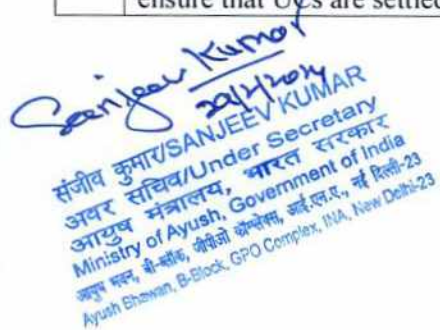 ensure that UCs are settled
Sanjeev Kumar
संजीव कुमार/SANJEEV KUMAR
अवर सचिव/Under Secretary
आयुष मंत्रालय, भारत सरकार
Ministry of Ayush, Government of India
आयुष भवन, बी-ब्लॉक, जीपीओ कॉम्प्लेक्स, आई.एन.ए., नई दिल्ली-23
Ayush Bhawan, B-Block, GPO Complex, INA, New Delhi-23